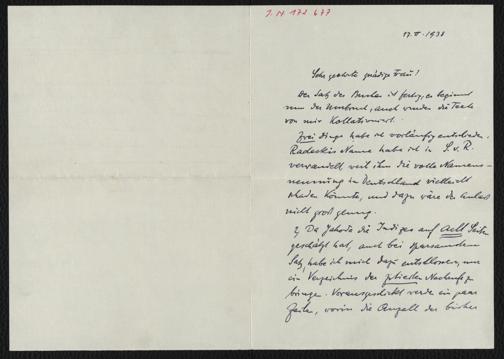 J.N. 172.677
17.II.1938
Sehr geehrte, gnädige Frau!
Der Satz des Buches ist fertig, es beginnt
nun der Umbruch, auch wurden die Texte
von mir kollationiert.
Zwei Dinge habe ich vorläufig entschieden.
Radeckis Name habe ich in S. v. R.
verwandelt, weil ihm die volle Namens-
nennung in Deutschland vielleicht
schaden könnte, und dazu wäre der Anlaß
nicht groß genug.
2) Da Jahoda die Indizes auf acht Seiten
geschätzt hat, auch bei sparsamem
Satz, habe ich mich dazu entschlossen, nur
ein Verzeichnis der zitierten
bringen. Vorausgeschickt werde ein paar
Zeilen, worin die Anzahl der bisher